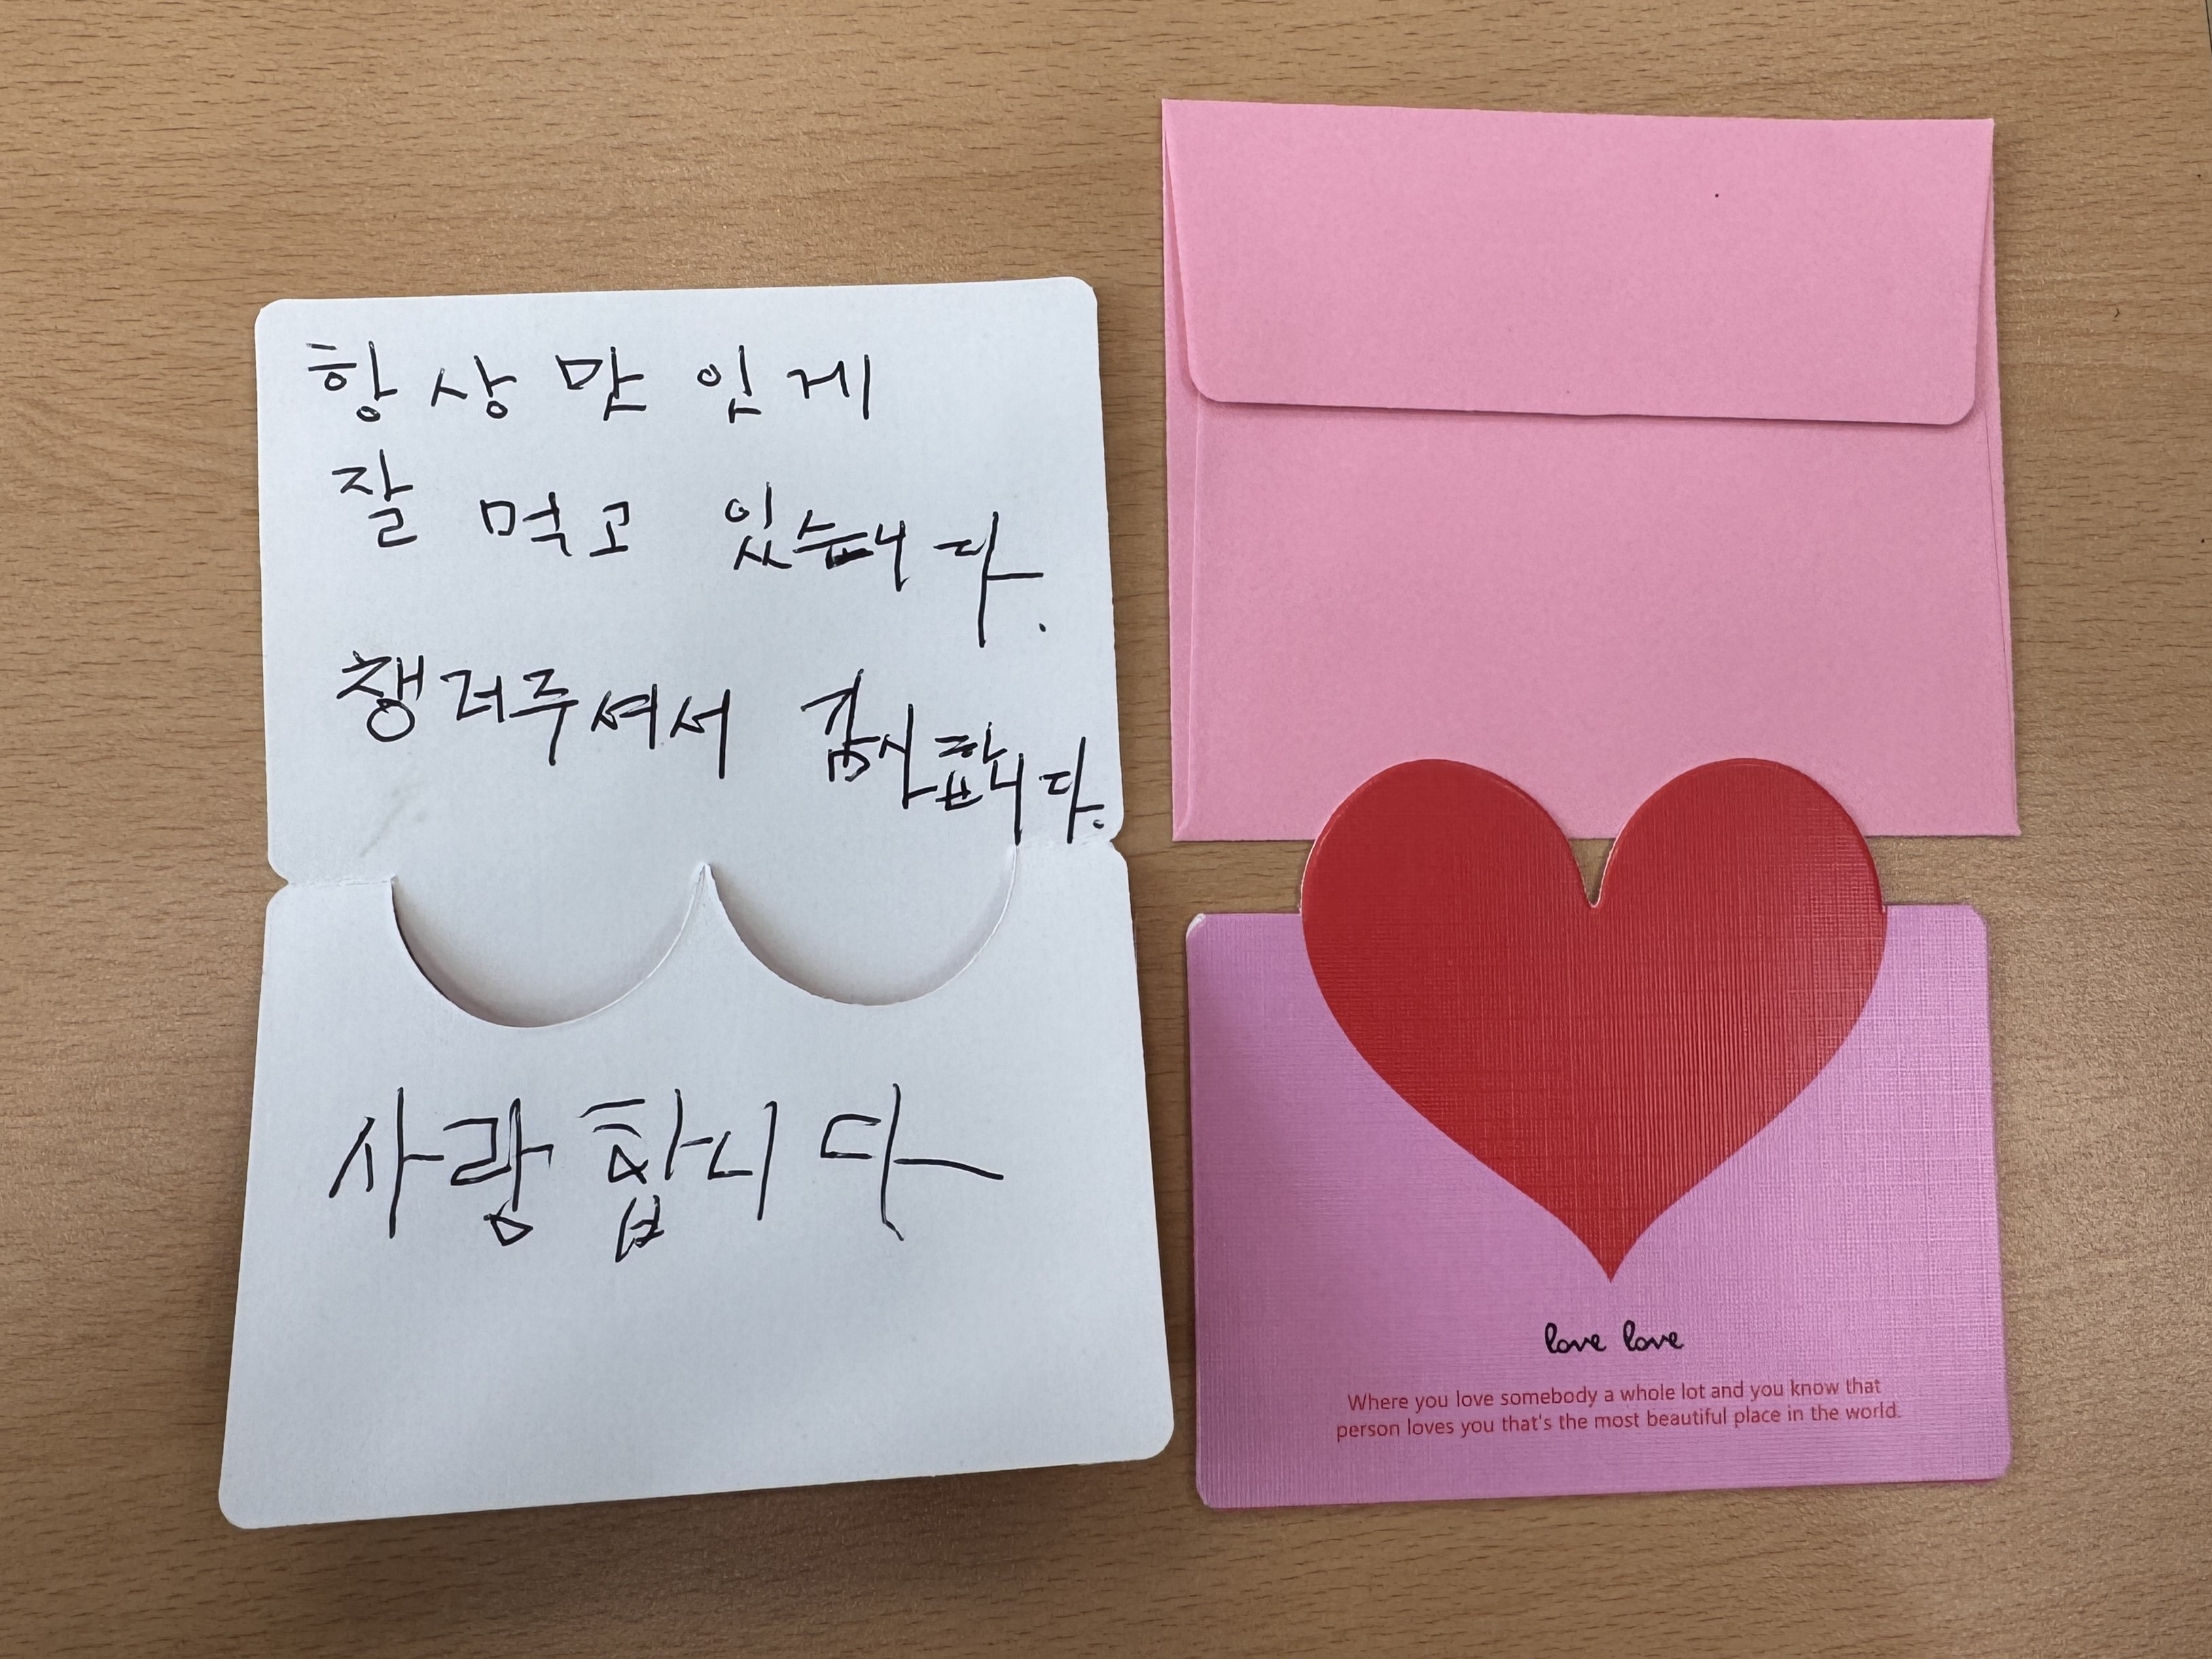 항상 맛 잇게
잘 먹고 있습니다.
챙겨주셔서 감사합니다.
사랑합니다
love love
Where you love somebody a whole lot and you know that
person loves you that's the most beautiful place in the world.